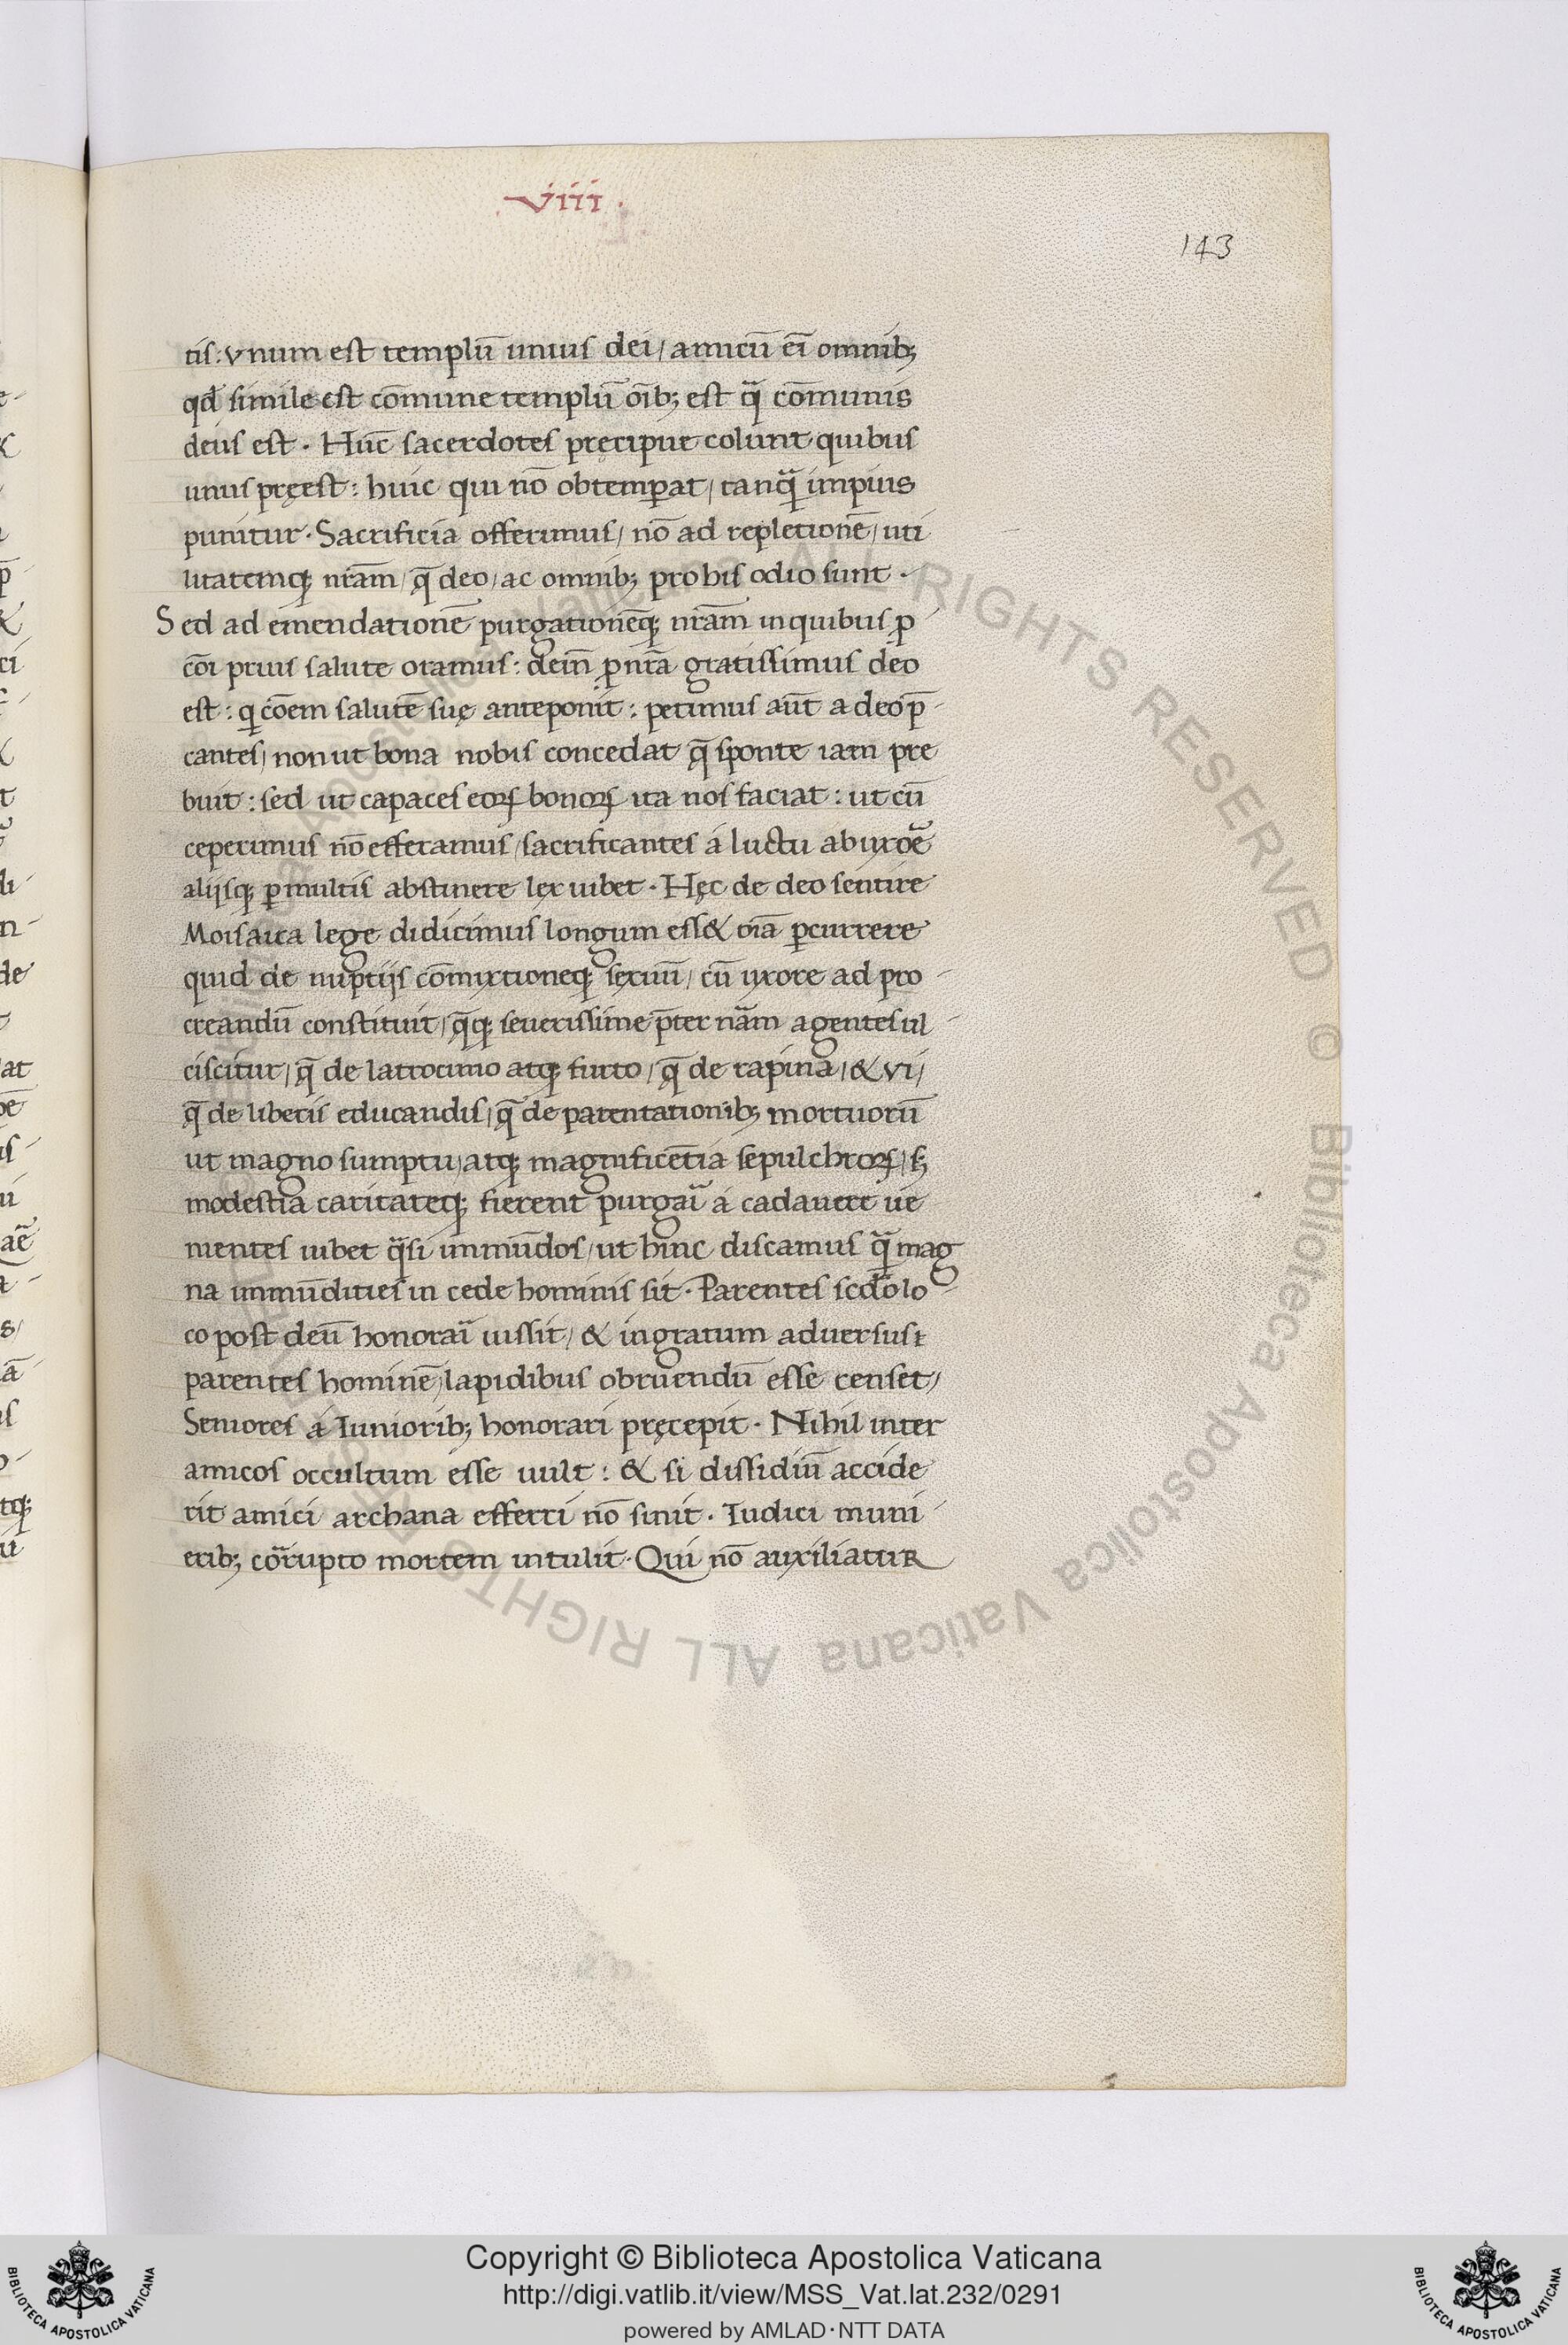 .viii.
143
tis: vnum est templū unius dei/ amicū eī omnib;
qđ simile est cōmune templū oīb; est q̃ cōmunis
deus est. Hūc sacerdotes pręcipue colunt quibus
unus pręest: huic qui nō obtemꝑat/ tanq̃ impius
punitur. Sacrificia offerimus/ nō ad repletionē/ uti
litatemq; nr̄am/ q̄ deo/ ac omnib; probis odio sunt.
Sed ad emendationē purgationēq; nr̄am in quibus ꝓ
cōi prius salute oramus: dein̄ ꝑ nr̄a gratissimus deo
est: qͥ cōem salutē suę anteponit: petimus aūt a deo p̄-
cantes/ non ut bona nobis concedat q̄ sponte iam pre
buit: sed ut capaces eoꝝ bonoꝝ ita nos faciat: ut cū
ceperimus nō efferamus/ sacrificantes á luctu ab uxoē
alijsq; ꝑmultis abstinere lex iubet. Hęc de deo sentire
Moisaica lege didicimus longum ess& oīa ꝑcurrere
quid de nuptijs cōmixtioneq; sexuū/ cū uxore ad pro-
creandū constituit/ q̄q; seuerissime p̄ter nãm agentes ul-
ciscitur/ q̄ de latrocinio atq; furto/ q̄ de rapina/ & vi/
q̄ de liberis educandis/ q̄ de parentationib; mortuorū
ut magno sumptu/ atq; magnificētia sepulchroꝝ/ s;
modestia caritateq; fierent purgaĩ á cadauere ue
nientes iubet q̃si immūdos/ ut hinc discamus q̃ mag
na immūdities in cede hominis sit. Parentes scd̄o lo-
co post deū honoraĩ iussit/ & ingratum aduersus
parentes hominē/ lapidibus obruendū esse censet/
Seniores á Iuniorib; honorari pręcepit. Nihil inter
amicos occultum esse uult: & si dissidiū accide
rit amici archana efferri nō sinit. Iudici muni-
erib; corrupto mortem intulit. Qui nō auxiliatuR
Copyright © Biblioteca Apostolica Vaticana
http://digi.vatlib.it/view/MSS_Vat.lat.232/0291
powered by AMLAD·NTT DATA